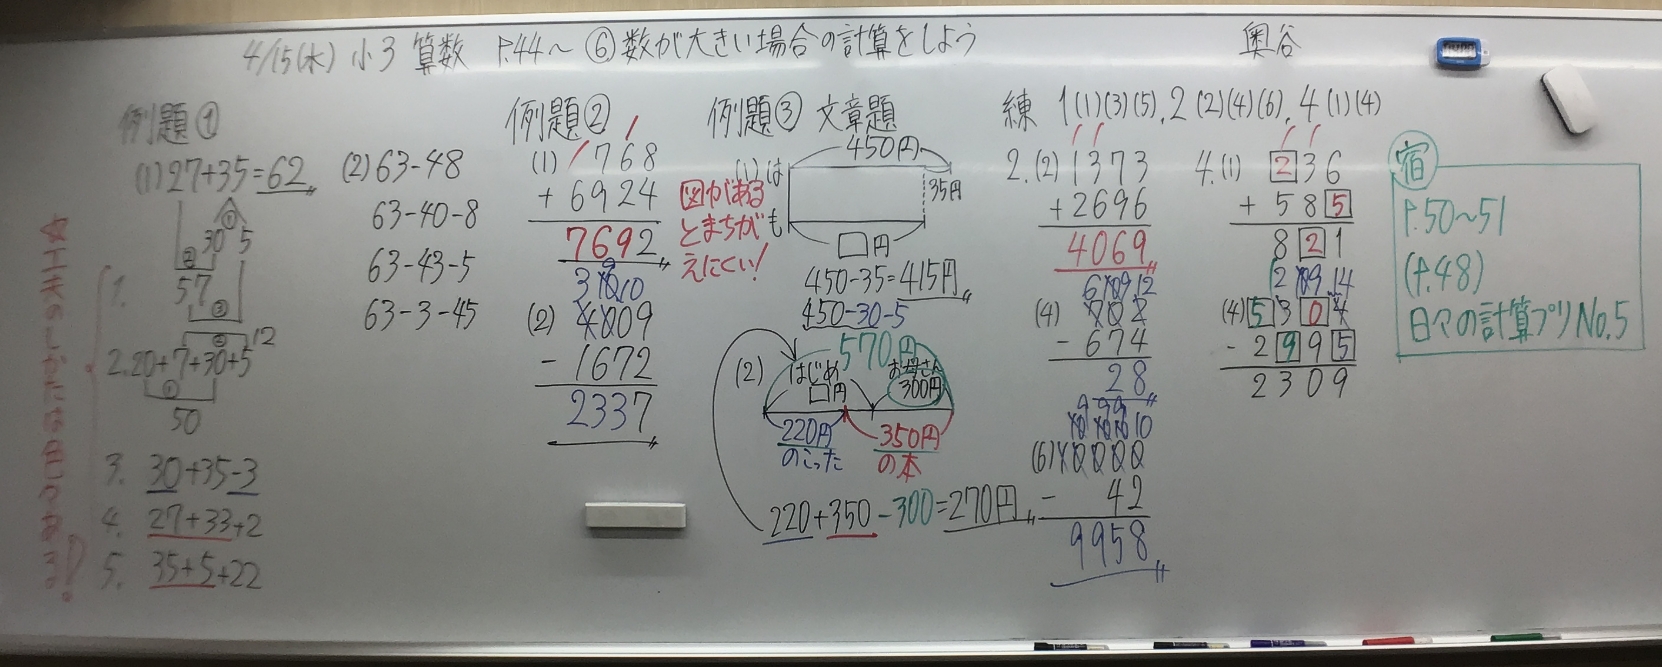 4/15(水) 小3 算数 P.44〜 ⑥数が大きい場合の計算をしよう 奥谷
例題①
(1) 27+35=62
① 30 5
②
57
③
1.
2. 20+7+30+5
② 12
①
50
3. 30+35-3
4. 27+33+2
5. 35+5+22
☆工夫のしかたは色々ある!
(2) 63-48
63-40-8
63-43-5
63-3-45
例題②
(1) 768
+ 6924
7692
3 10 9 10
(2) 4009
- 1672
2337
例題③ 文章題
(1)は
図がある
とまちが も
えにくい!
450円
35円
□円
450-35=415円
450-30-5
(2)
570円
はじめ
□円
お母さん
300円
220円
のこった
350円
の本
220+350-300=270円
練 1(1)(3)(5), 2(2)(4)(6), 4(1)(4)
2.(2) 1373
+2696
4069
6 10 9 12
(4) 702
- 674
28
9 9 9
10 10 10 10
(6) 10000
- 42
9958
4.(1) 236
+ 585
821
2 10 9 14
(4) 5304
- 2995
2309
宿
P.50〜51
(P.48)
日々の計算プリNo.5